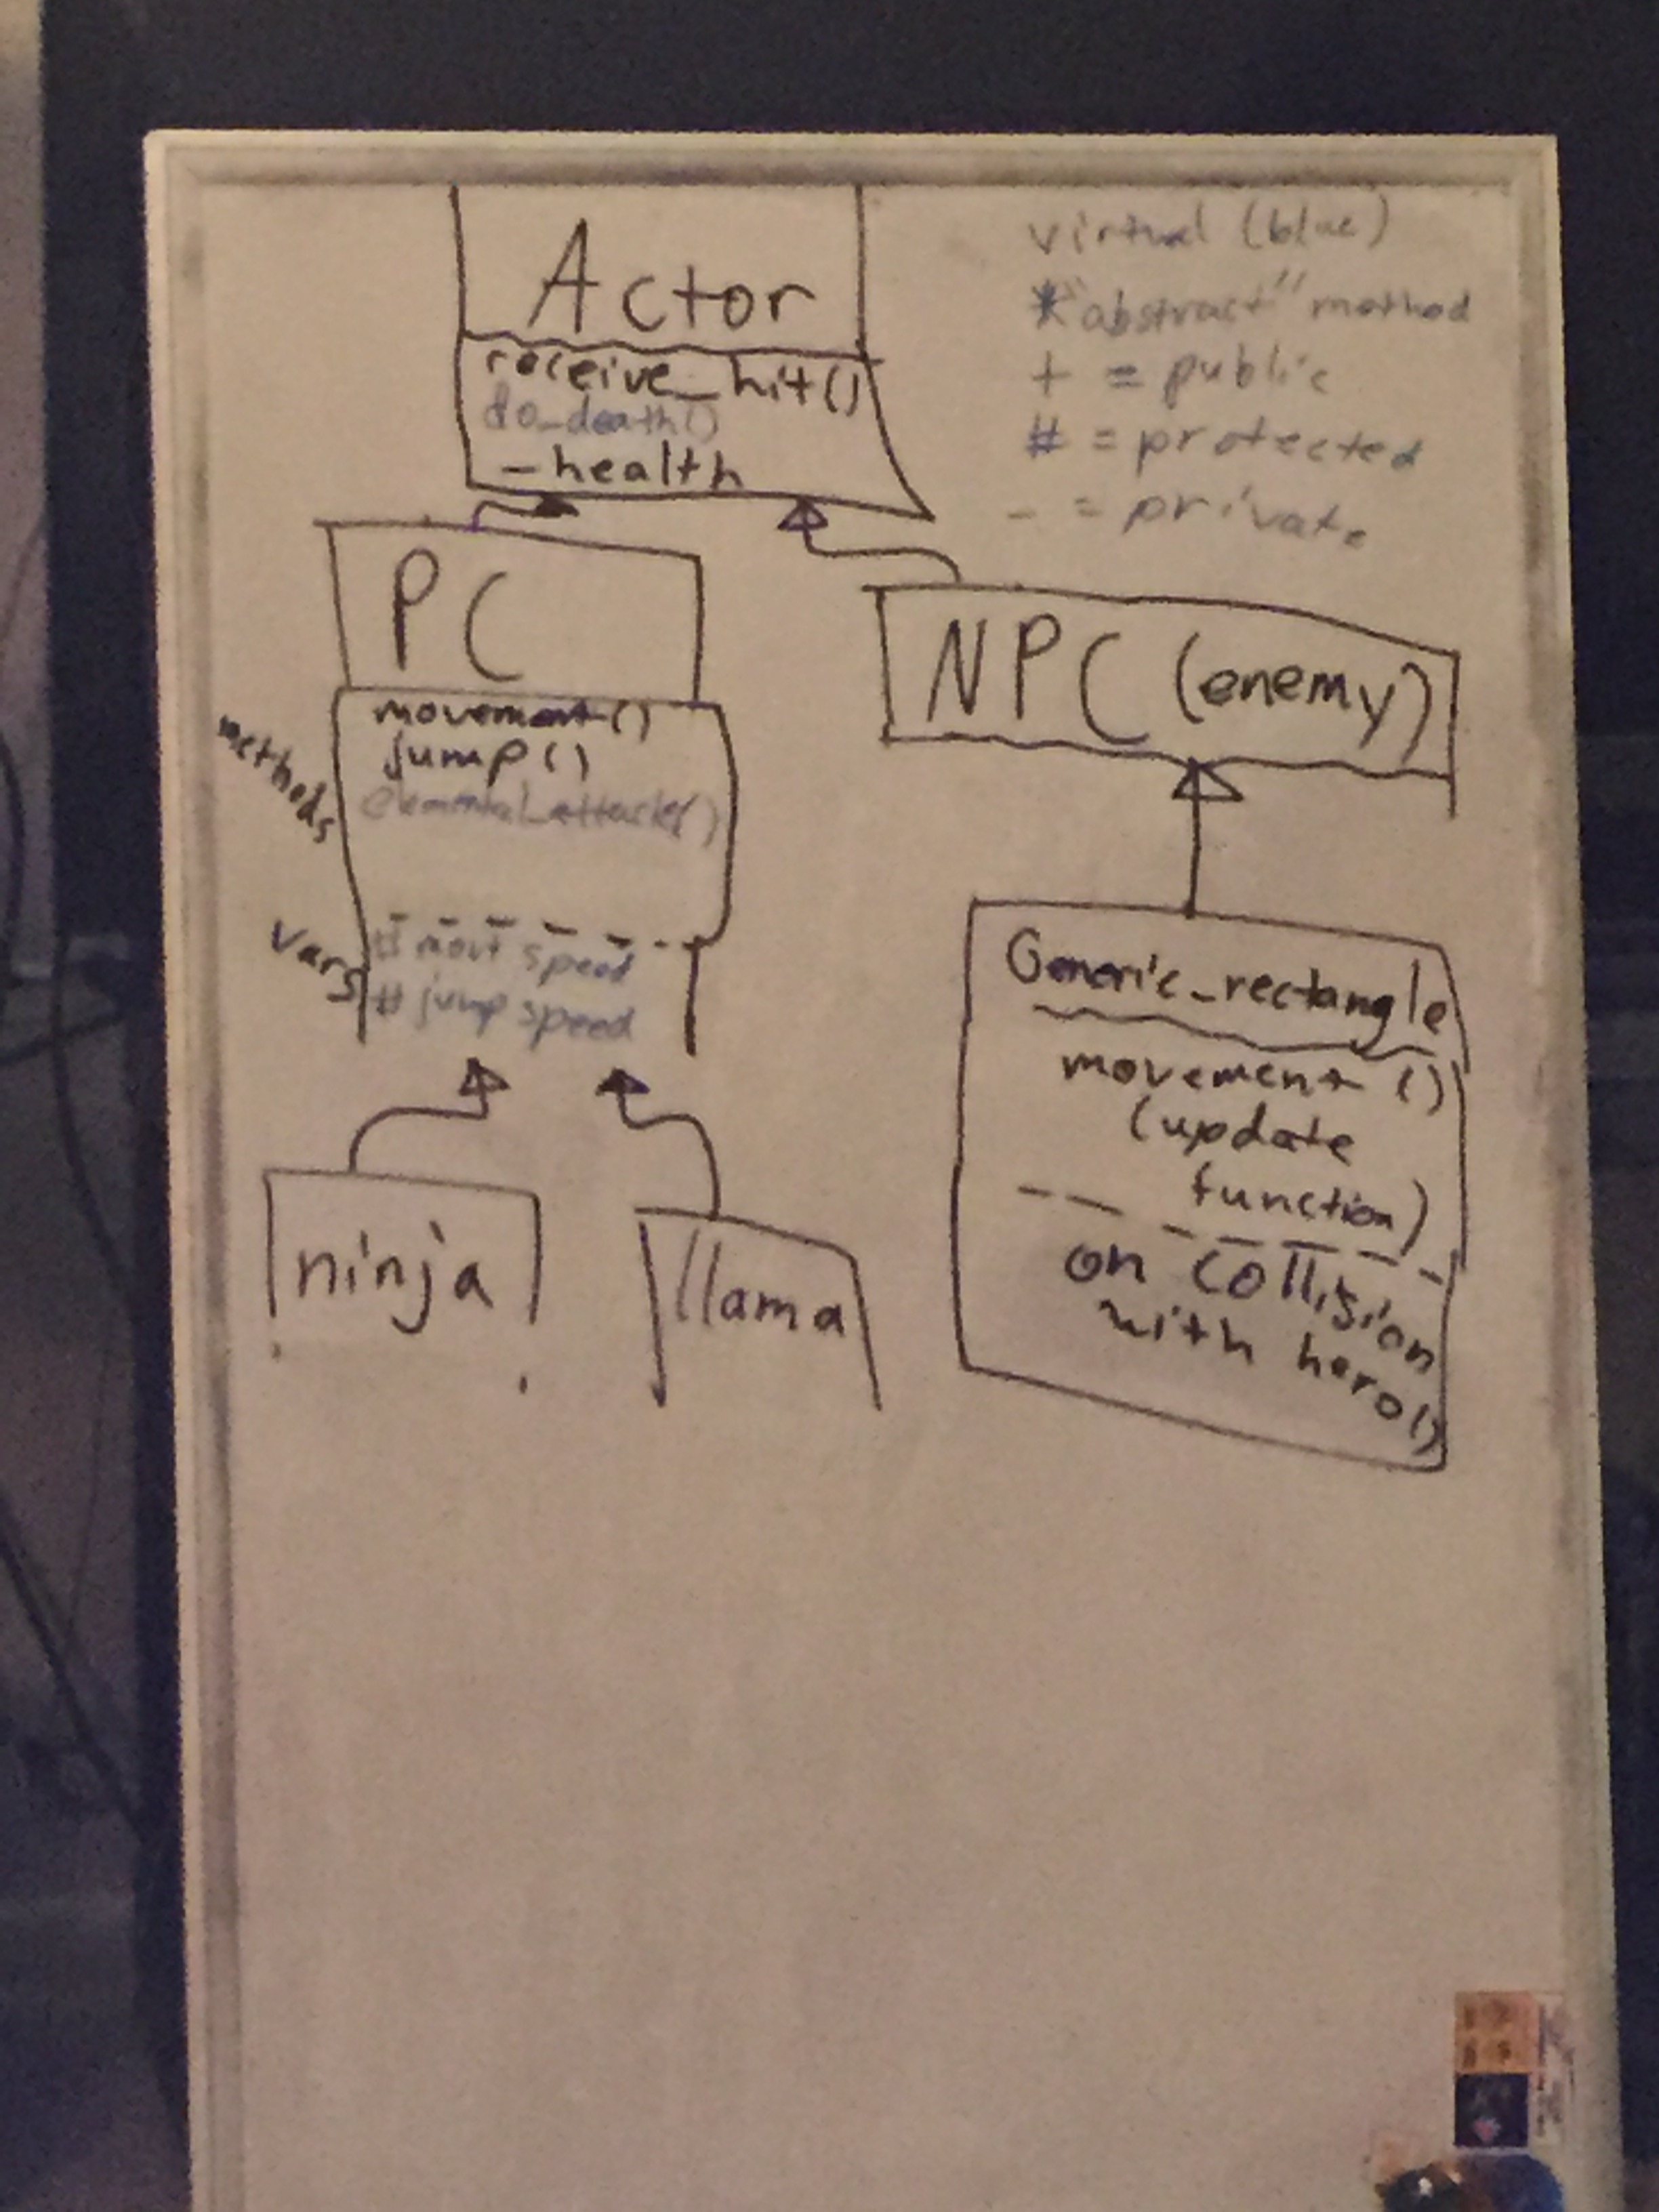 Actor
receive_hit()
do_death()
-health
virtual (blue)
*"abstract" method
+ = public
# = protected
- = private
PC
methods
movement()
jump()
elemental_attack()
vars
# mov't speed
# jump speed
NPC (enemy)
ninja
llama
Generic_rectangle
movement ()
(update
function)
on collision
with hero()